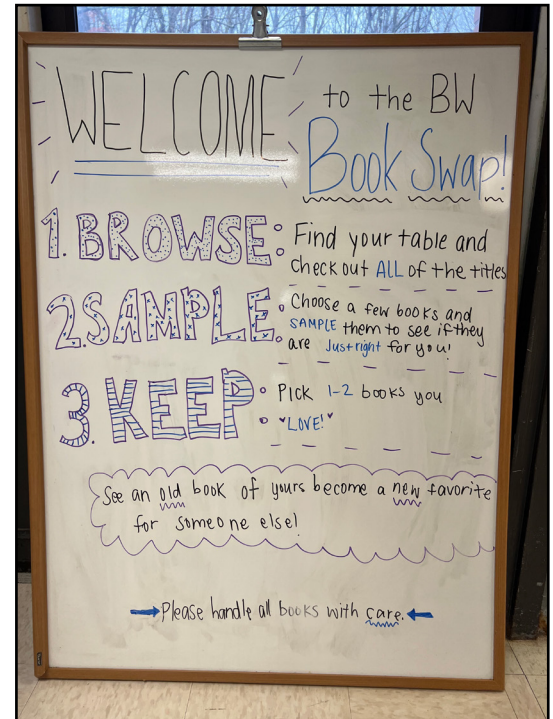 WELCOME to the BW
Book Swap!
1. BROWSE: Find your table and
check out ALL of the titles
2. SAMPLE: Choose a few books and
SAMPLE them to see if they
are Just right for you!
3. KEEP: Pick 1-2 books you
"LOVE!"
See an old book of yours become a new favorite
for someone else!
Please handle all books with care.